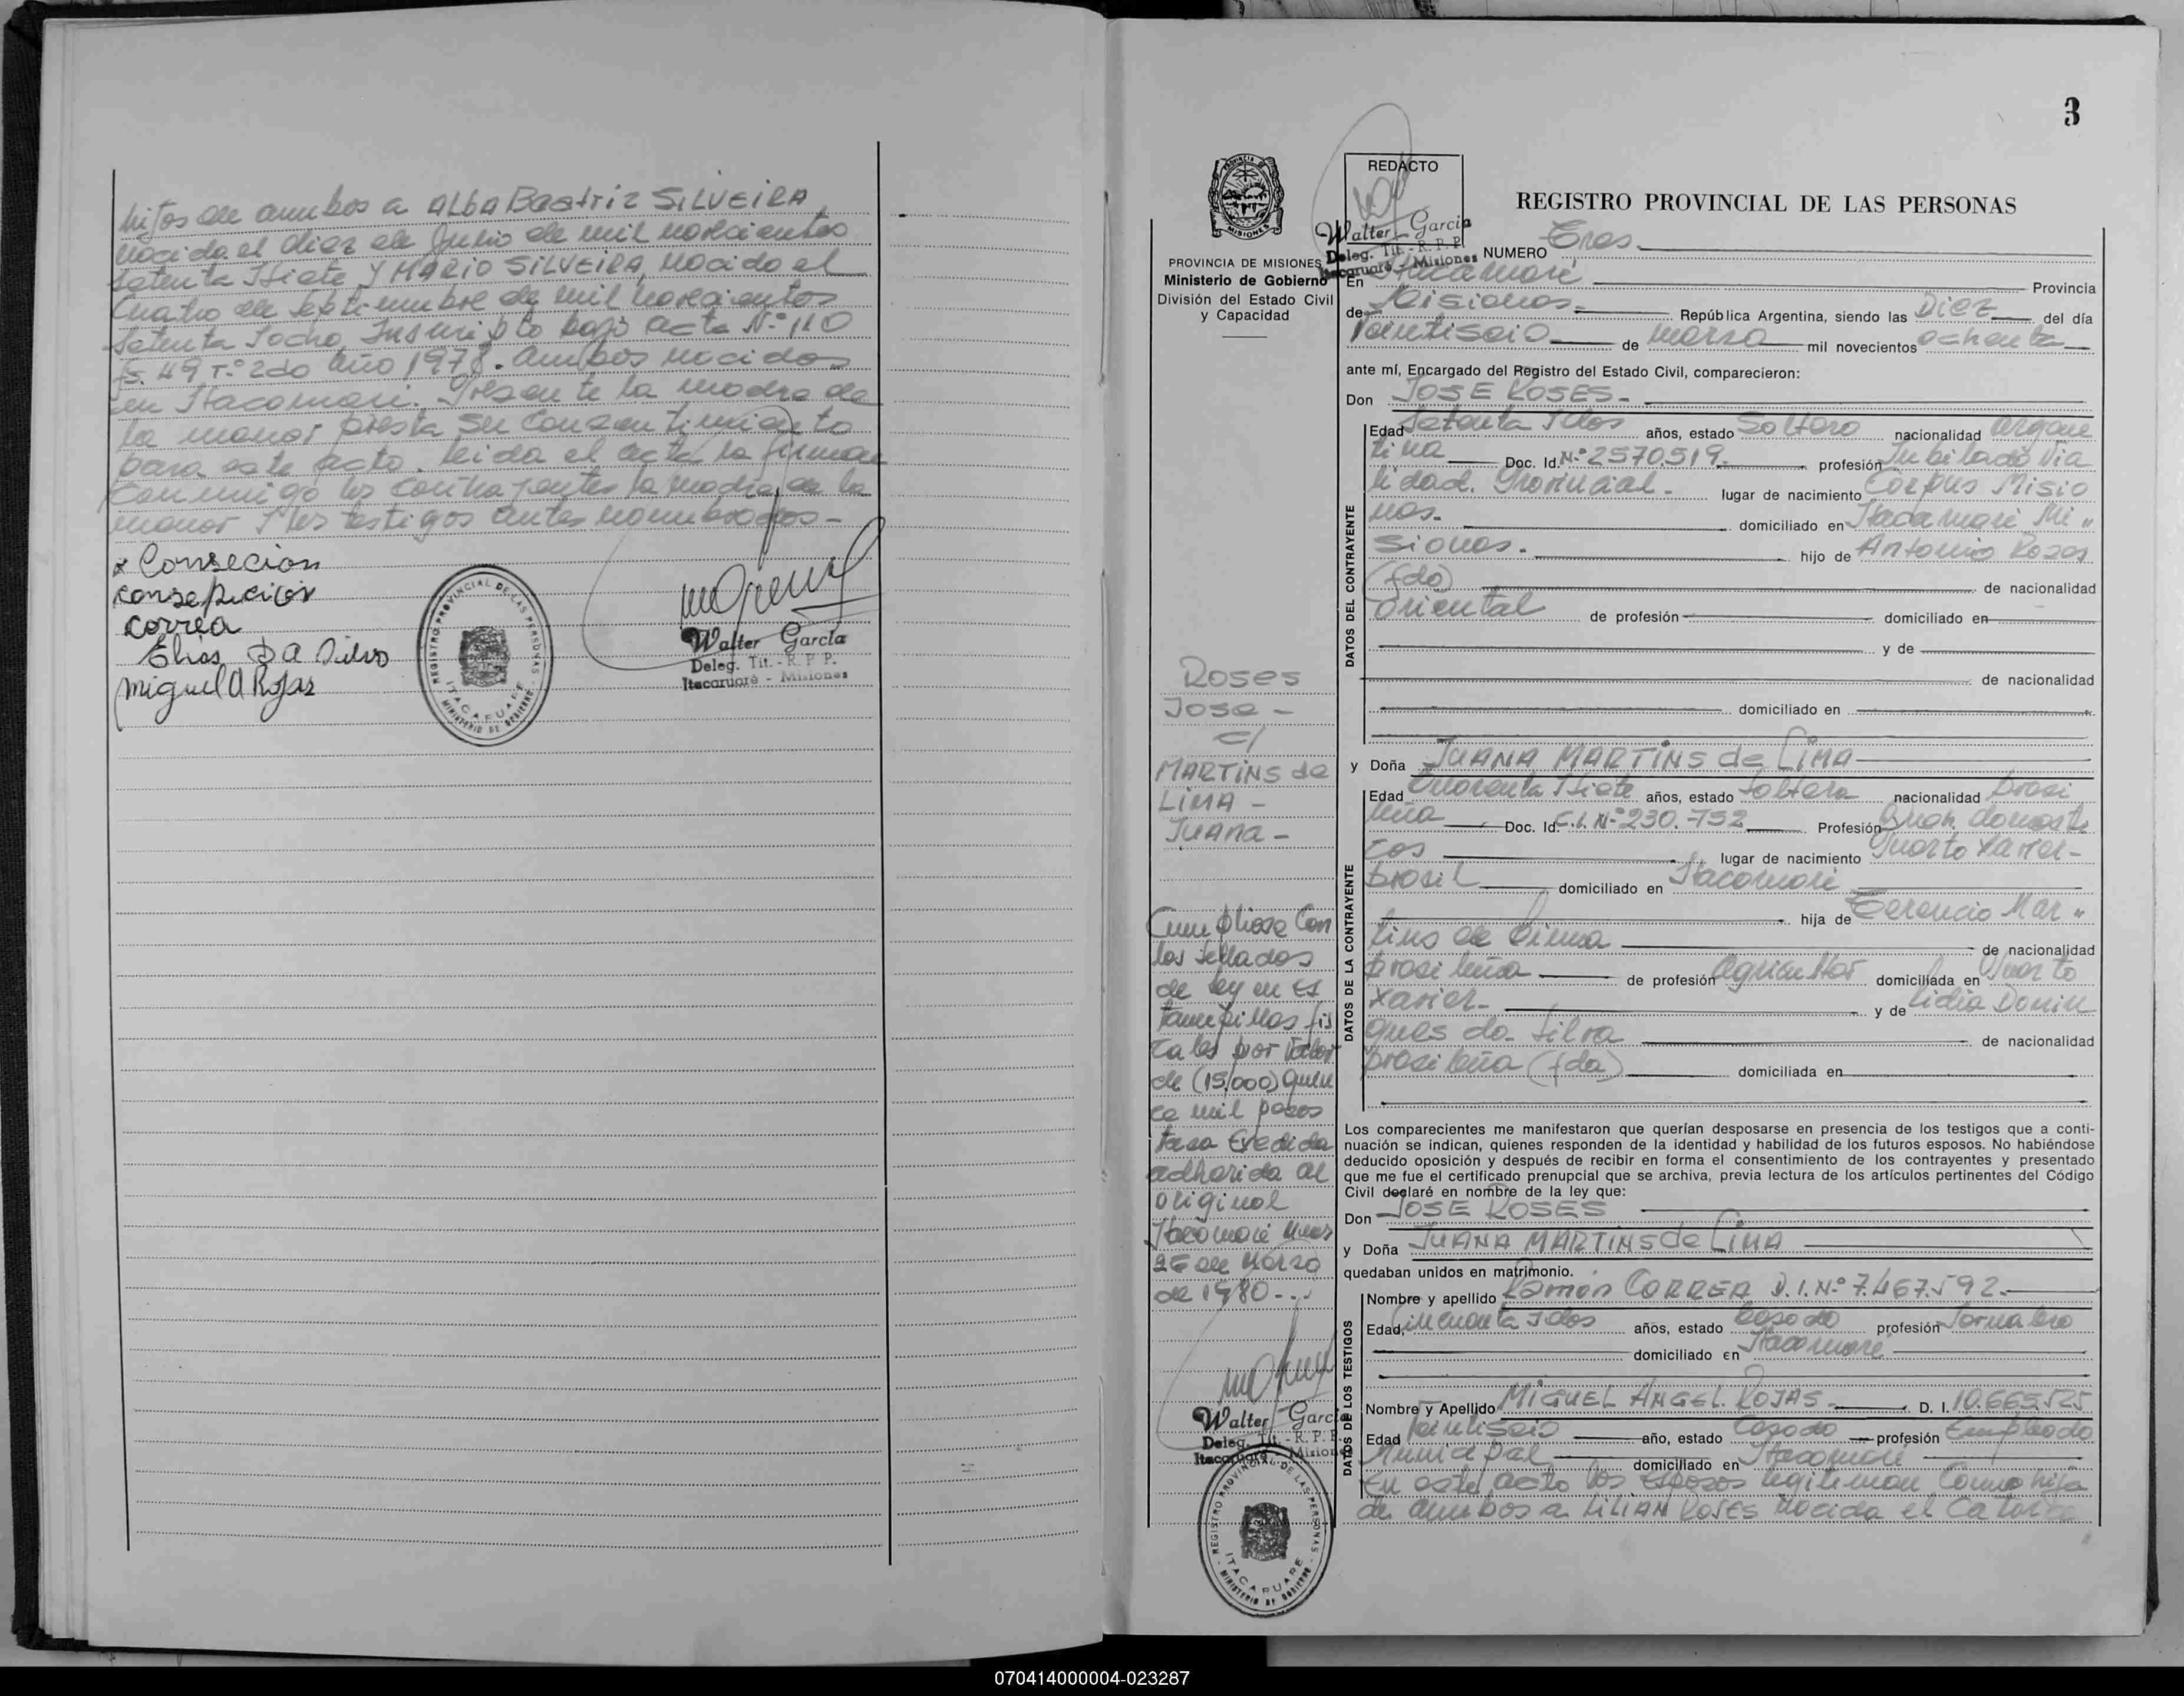 hijos de ambos a ALBA Beatriz SILVEIRA
nacida el diez de Julio de mil novecientos
setenta Isiete Y MARIO SILVEIRA, nacido el
Cuatro de septiembre de mil novecientos
setenta Iocho, Inscripto bajo acta N.º 110
fs. 49 T.º 2do año 1978. ambos nacidos
en Itacaruaré. Presente la madre de
la menor presta su consentimiento
para este acto. Leida el acta la firman
conmigo los contrayentes la madre de la
menor Ilos testigos antes nombrados -
x Consecion
consepicion
correa
Elias DA Silva
Miguel A Rojas
REGISTRO PROVINCIAL DE LAS PERSONAS
ITACARUARE
MINISTERIO DE GOBIERNO
Walter García
Deleg. Tit. - R. P. P.
Itacaruaré - Misiones
3
PROVINCIA DE MISIONES
Ministerio de Gobierno
División del Estado Civil
y Capacidad
REDACTO
Walter García
Deleg. Tit. - R. P. P.
Itacaruaré - Misiones
Roses
Jose -
c/
MARTINS de
LIMA -
Juana -
Cumpliose Con
los Sellados
de ley en es
tampillas fis
cales por valor
de (15,000) quin
ce mil pesos
tasa
adherida al
original
Itacaruaré Mnes
26 de Marzo
de 1980 - - -
Walter García
Deleg. Tit. - R. P. P.
Itacaruaré - Misiones
REGISTRO PROVINCIAL DE LAS PERSONAS
ITACARUARE
MINISTERIO DE GOBIERNO
REGISTRO PROVINCIAL DE LAS PERSONAS
NUMERO Tres.
En Itacaruaré Provincia
de Misiones.- República Argentina, siendo las Diez del día
Veintiseis de marzo mil novecientos ochenta
ante mí, Encargado del Registro del Estado Civil, comparecieron:
Don JOSE ROSES.-
DATOS DEL CONTRAYENTE
Edad Setenta Idos años, estado Soltero nacionalidad argen
tina Doc. Id. N.º 2570.519. profesión Jubilado Via
lidad. Provincial.- lugar de nacimiento Corpus Misio
nes.- domiciliado en Itacaruaré Mi "
siones.- hijo de Antonio Roses
(fdo) de nacionalidad
oriental de profesión domiciliado en
y de
de nacionalidad
domiciliado en
y Doña JUANA MARTINS de LIMA
DATOS DE LA CONTRAYENTE
Edad Cuarenta Isiete años, estado Soltera nacionalidad brasi
leña Doc. Id. C.I. N.º 230.752 Profesión Queh. domesti
cos lugar de nacimiento Puerto Xavier-
Brasil domiciliado en Itacaruaré
hija de Terencio Mar "
tins de Lima de nacionalidad
brasileña de profesión Agricultor domiciliada en Puerto
Xavier- y de Lidia Domin
gues da Silva de nacionalidad
brasileña (fda) domiciliada en
Los comparecientes me manifestaron que querían desposarse en presencia de los testigos que a conti-
nuación se indican, quienes responden de la identidad y habilidad de los futuros esposos. No habiéndose
deducido oposición y después de recibir en forma el consentimiento de los contrayentes y presentado
que me fue el certificado prenupcial que se archiva, previa lectura de los artículos pertinentes del Código
Civil declaré en nombre de la ley que:
Don JOSE ROSES
y Doña JUANA MARTINS de LIMA
quedaban unidos en matrimonio.
DATOS DE LOS TESTIGOS
Nombre y apellido Ramón CORREA D.I.Nº 7.467.592.
Edad, Cincuenta Idos años, estado Casado profesión Jornalero
domiciliado en Itacaruaré
Nombre y Apellido MIGUEL ANGEL ROJAS D. I. 10.665.525
Edad Veintiseis año, estado Casado profesión Empleado
Municipal domiciliado en Itacaruaré
En este acto los esposos legitiman Como hija
de ambos a LILIAN ROSES nacida el Catorce
070414000004-023287